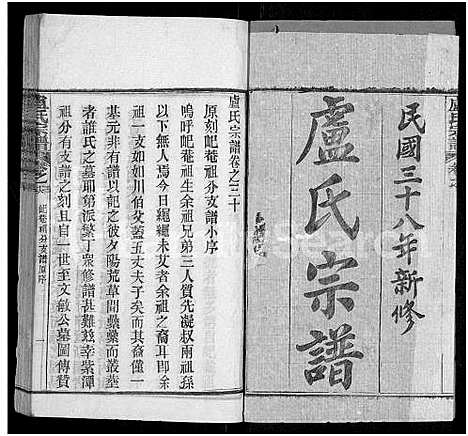 民國三十八年新修
盧氏宗譜
盧氏宗譜卷之三十
原刻屺菴祖分支譜小序
嗚呼屺菴祖生余祖兄弟三人質先凝叔兩祖
以下無人焉今日繩繩未艾者余祖之裔耳即余
祖一支如如川伯父蓋五丈夫子矣而其裔僅一
基元非有譜以記之夕陽荒草間纍纍而叢塋
者誰氏之墓耶第派繁丁衆修譜甚難茲幸紫潭
祖分有支譜之刻且自一世至文敏公墓圖傳贊
盧氏宗譜
屺菴祖分支譜原序
一